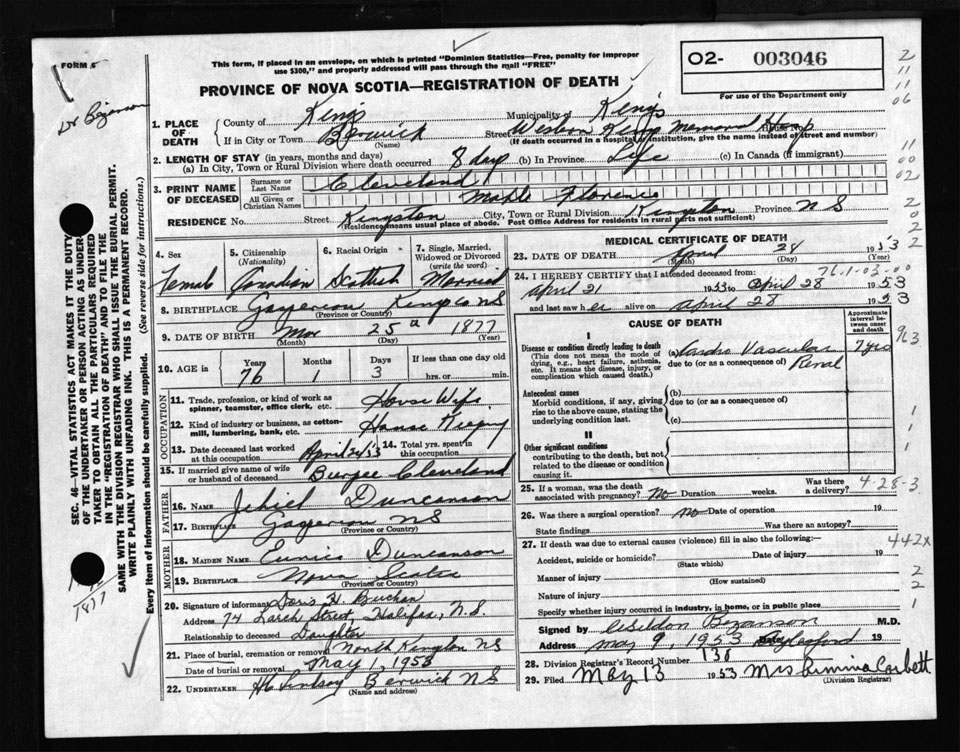 FORM 5
This form, if placed in an envelope, on which is printed "Dominion Statistics—Free, penalty for improper
use $300," and properly addressed will pass through the mail "FREE"
O2- 003046
For use of the Department only
PROVINCE OF NOVA SCOTIA—REGISTRATION OF DEATH
Dr Bezanson
2
11
11
06
11
00
02
2
0
2
2
1. PLACE OF DEATH
County of Kings Municipality of Kings
If in City or Town Berwick Street Western Kings Memorial Hosp House No.
(Name) (If death occurred in a hospital or institution, give the name instead of street and number)
2. LENGTH OF STAY (in years, months and days)
(a) In City, Town or Rural Division where death occurred 8 days (b) In Province Life (c) In Canada (if immigrant)
3. PRINT NAME OF DECEASED
Surname or Last Name Cleveland
All Given or Christian Names Mable Florence
RESIDENCE No. Street Kingston City, Town or Rural Division Kingston Province N S
(Residence means usual place of abode. Post Office Address for residents in rural parts not sufficient)
4. Sex 5. Citizenship (Nationality) 6. Racial Origin 7. Single, Married, Widowed or Divorced (write the word)
Female Canadian Scottish Married
8. BIRTHPLACE Gaspereau Kings co NS
(Province or Country)
9. DATE OF BIRTH Mar 25 1877
(Month) (Day) (Year)
10. AGE in Years Months Days If less than one day old
76 1 3 hrs. or min.
OCCUPATION
11. Trade, profession, or kind of work as spinner, teamster, office clerk, etc. House Wife
12. Kind of industry or business, as cotton-mill, lumbering, bank, etc. House Keeping
13. Date deceased last worked at this occupation April 21/53 14. Total yrs. spent in this occupation
15. If married give name of wife or husband of deceased Burgee Cleveland
FATHER
16. Name Jehiel Duncanson
17. Birthplace Gaspereau NS
(Province or Country)
MOTHER
18. MAIDEN NAME Eunice Duncanson
19. BIRTHPLACE Nova Scotia
(Province or Country)
20. Signature of informant Doris H. Buchan
Address 74 Larch Street, Halifax, N.S.
Relationship to deceased Daughter
21. Place of burial, cremation or removal North Kingston NS
Date of burial or removal May 1, 1953
22. UNDERTAKER H C Lindsay Berwick NS
(Name and address)
MEDICAL CERTIFICATE OF DEATH
23. DATE OF DEATH April 28 1953
(Month) (Day)
76.1-03-00
24. I HEREBY CERTIFY that I attended deceased from:
April 21 1953 to April 28 1953
and last saw her alive on April 28 1953
CAUSE OF DEATH
Approximate interval between onset and death
I
Disease or condition directly leading to death (a) Cardio Vascular 7 yrs
(This does not mean the mode of dying, e.g., heart failure, asthenia, etc. It means the disease, injury, or complication which caused death.)
due to (or as a consequence of) Renal
963
Antecedent causes (b)
Morbid conditions, if any, giving rise to the above cause, stating the underlying condition last.
due to (or as a consequence of)
(c)
II
Other significant conditions
contributing to the death, but not related to the disease or condition causing it.
1
1
1
25. If a woman, was the death associated with pregnancy? No Duration weeks. Was there a delivery?
4-28-3
26. Was there a surgical operation? No Date of operation 19
State findings Was there an autopsy?
27. If death was due to external causes (violence) fill in also the following:
442x
Accident, suicide or homicide? Date of injury 19
(State which)
Manner of injury
(How sustained)
Nature of injury
Specify whether injury occurred in industry, in home, or in public place
2
2
1
Signed by Weldon Bezanson M.D.
Address May 9, 1953 Aylesford 19
28. Division Registrar's Record Number 138
29. Filed May 13 1953 Mrs Corbett
(Division Registrar)
SEC. 46—VITAL STATISTICS ACT MAKES IT THE DUTY
OF THE UNDERTAKER OR PERSON ACTING AS UNDER-
TAKER TO OBTAIN ALL THE PARTICULARS REQUIRED
IN THE "REGISTRATION OF DEATH" AND TO FILE THE
SAME WITH THE DIVISION REGISTRAR WHO SHALL ISSUE THE BURIAL PERMIT.
WRITE PLAINLY WITH UNFADING INK. THIS IS A PERMANENT RECORD.
Every item of information should be carefully supplied. (See reverse side for instructions.)
1877